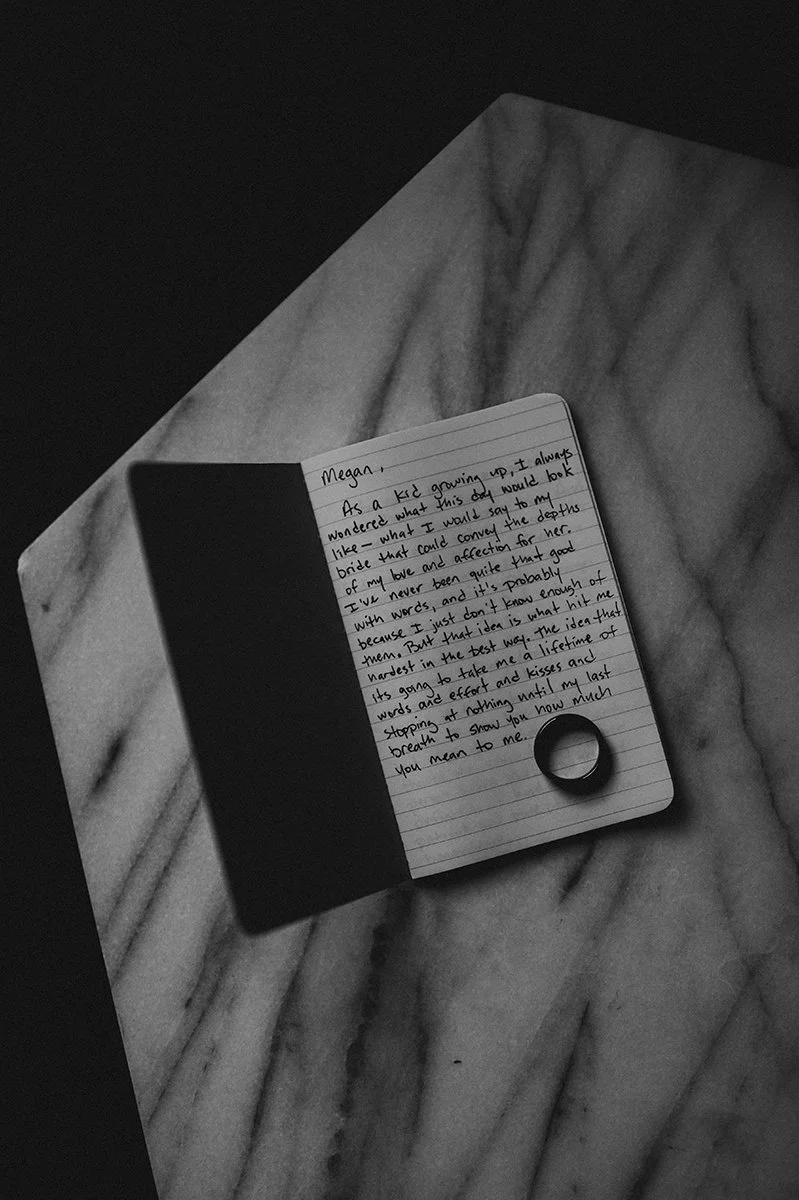 Megan,
As a kid growing up, I always
wondered what this day would look
like – what I would say to my
bride that could convey the depths
of my love and affection for her.
I've never been quite that good
with words, and it's probably
because I just don't know enough of
them. But that idea is what hit me
hardest in the best way. The idea that
its going to take me a lifetime of
words and effort and kisses and
stopping at nothing until my last
breath to show you how much
you mean to me.